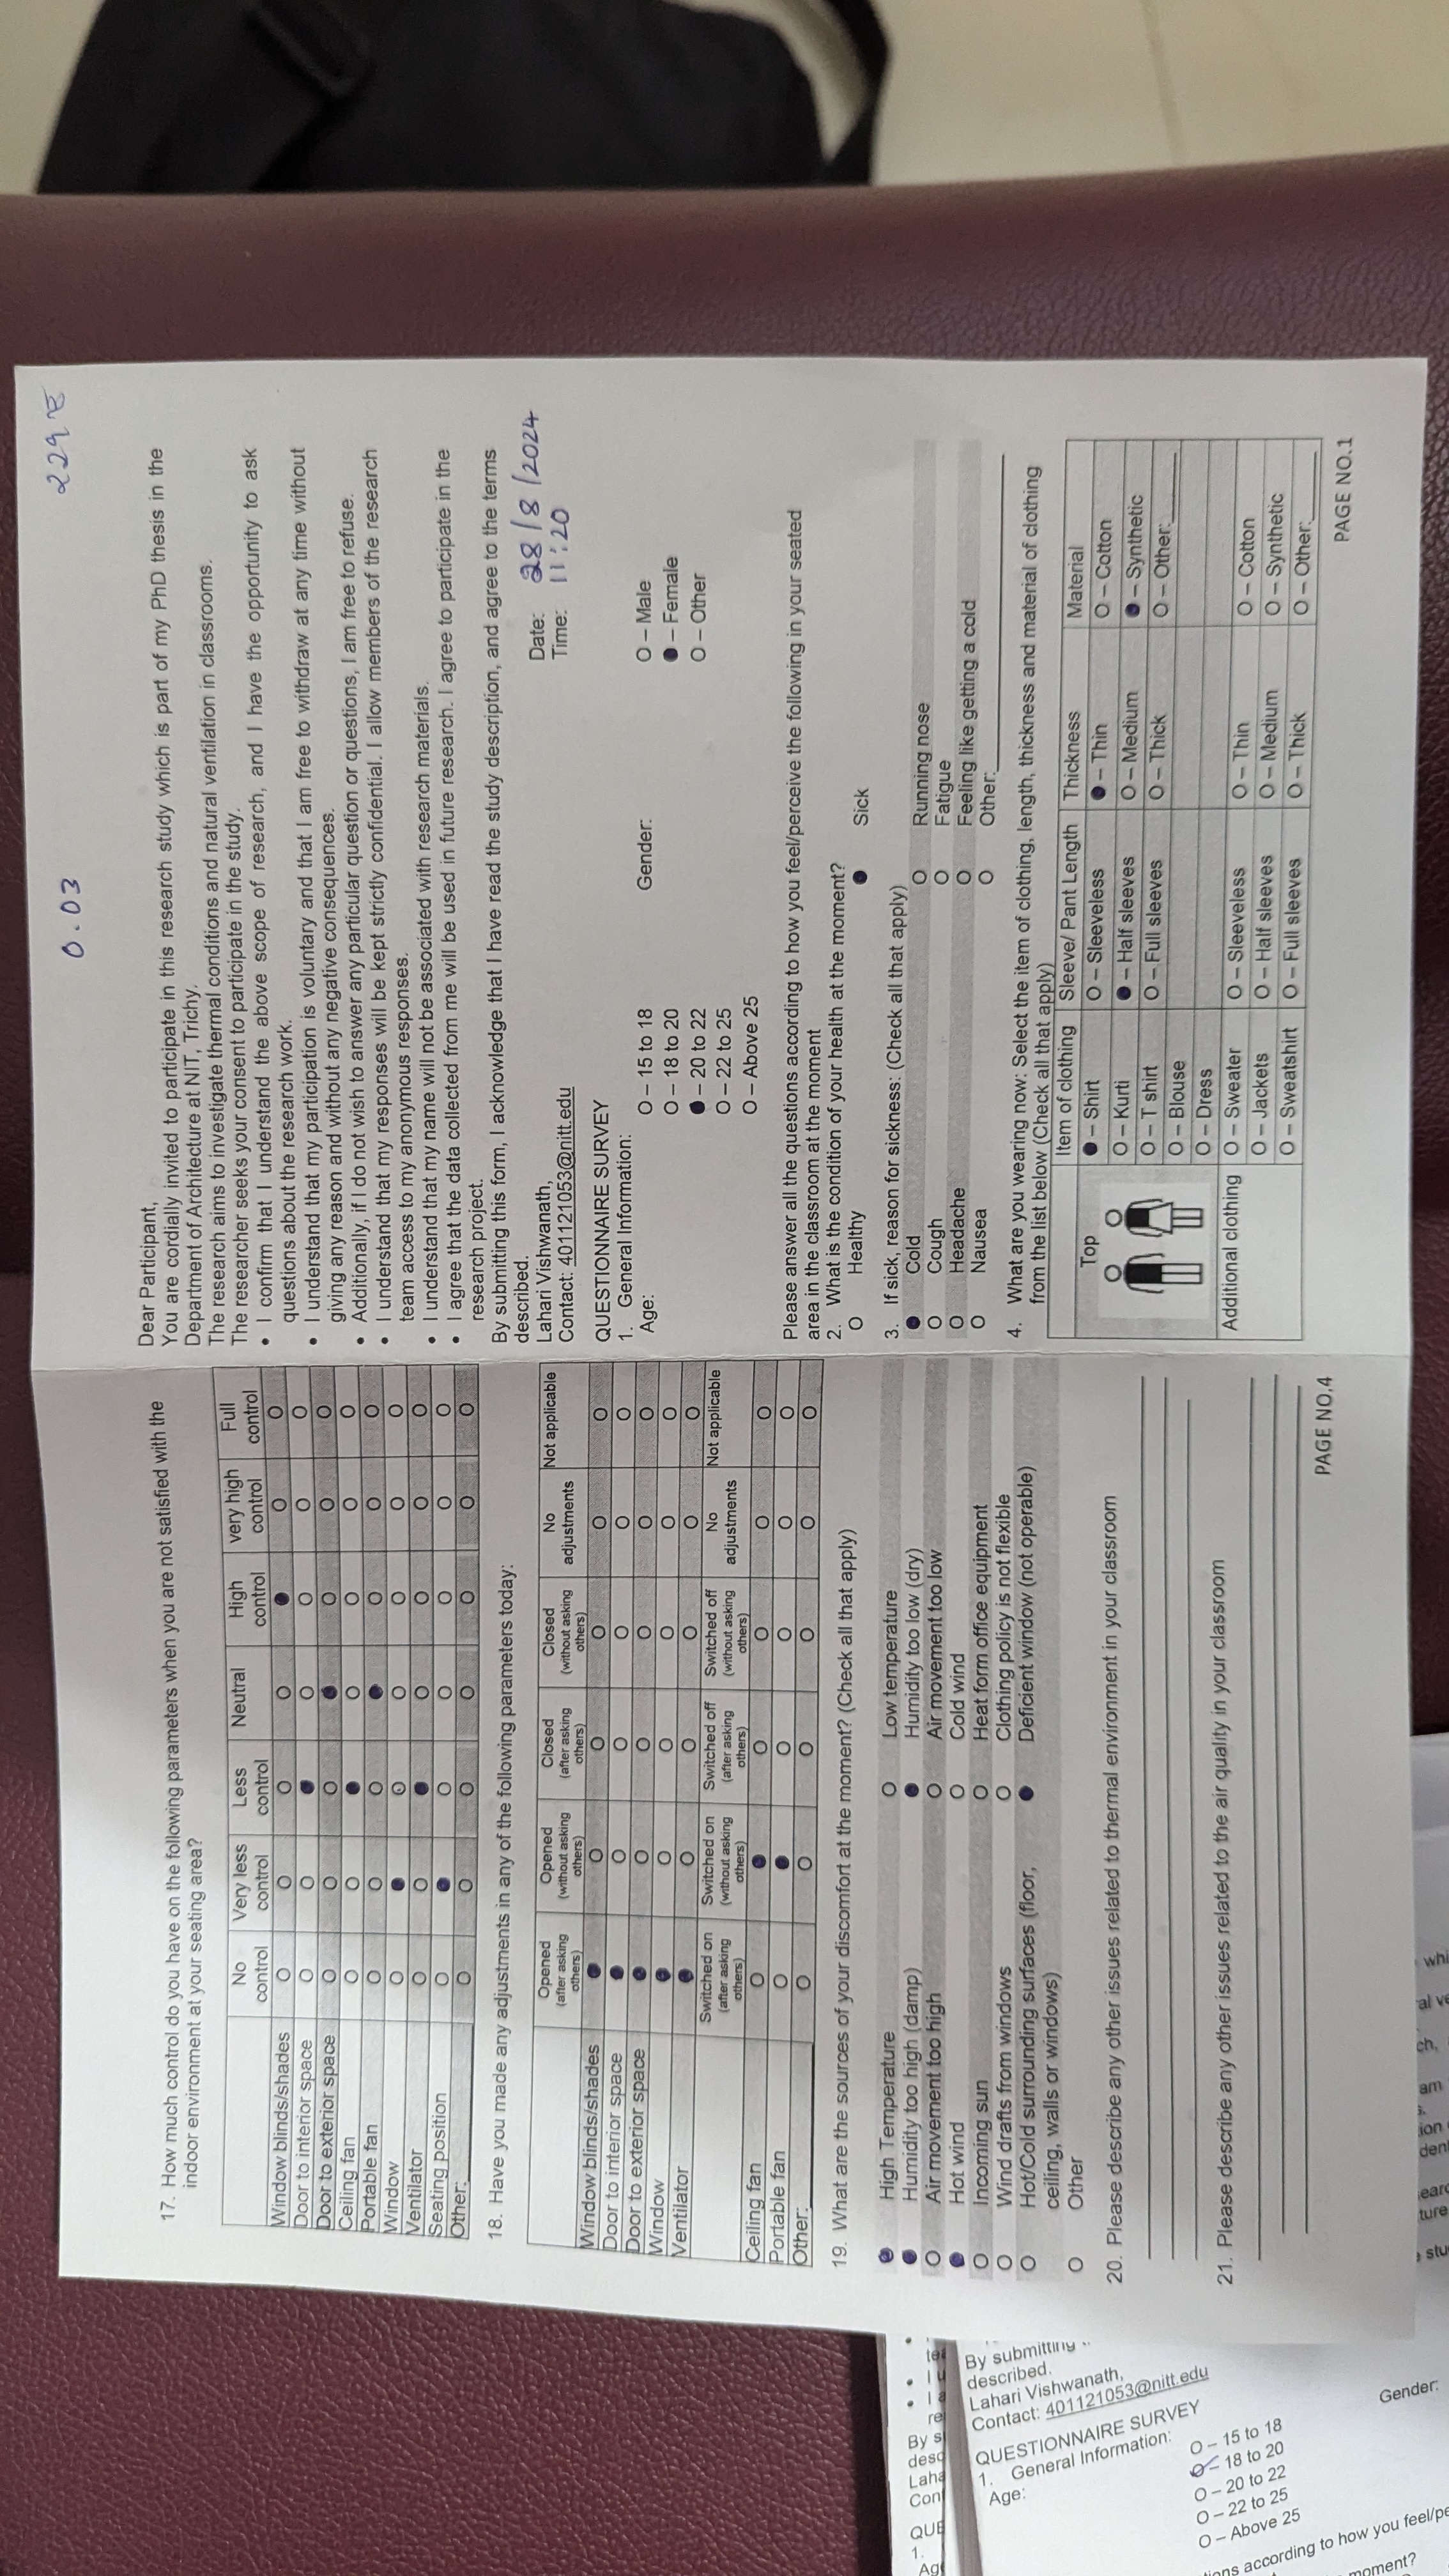 17. How much control do you have on the following parameters when you are not satisfied with the
indoor environment at your seating area?
No control | Very less control | Less control | Neutral | High control | very high control | Full control
Window blinds/shades O O O O ● O O
Door to interior space O O ● O O O O
Door to exterior space O O O ● O O O
Ceiling fan O O ● O O O O
Portable fan O O O ● O O O
Window O ● O O O O O
Ventilator O O ● O O O O
Seating position O ● O O O O O
Other: O O O O O O O
18. Have you made any adjustments in any of the following parameters today:
Opened (after asking others) | Opened (without asking others) | Closed (after asking others) | Closed (without asking others) | No adjustments | Not applicable
Window blinds/shades ● O O O O O
Door to interior space ● O O O O O
Door to exterior space ● O O O O O
Window ● O O O O O
Ventilator ● O O O O O
Switched on (after asking others) | Switched on (without asking others) | Switched off (after asking others) | Switched off (without asking others) | No adjustments | Not applicable
Ceiling fan O ● O O O O
Portable fan O ● O O O O
Other: O O O O O O
19. What are the sources of your discomfort at the moment? (Check all that apply)
● High Temperature O Low temperature
● Humidity too high (damp) ● Humidity too low (dry)
O Air movement too high O Air movement too low
● Hot wind O Cold wind
O Incoming sun O Heat form office equipment
O Wind drafts from windows O Clothing policy is not flexible
O Hot/Cold surrounding surfaces (floor, ● Deficient window (not operable)
ceiling, walls or windows)
O Other
20. Please describe any other issues related to thermal environment in your classroom
21. Please describe any other issues related to the air quality in your classroom
PAGE NO.4
0.03
229 E
Dear Participant,
You are cordially invited to participate in this research study which is part of my PhD thesis in the
Department of Architecture at NIT, Trichy.
The research aims to investigate thermal conditions and natural ventilation in classrooms.
The researcher seeks your consent to participate in the study.
• I confirm that I understand the above scope of research, and I have the opportunity to ask
questions about the research work.
• I understand that my participation is voluntary and that I am free to withdraw at any time without
giving any reason and without any negative consequences.
• Additionally, if I do not wish to answer any particular question or questions, I am free to refuse.
• I understand that my responses will be kept strictly confidential. I allow members of the research
team access to my anonymous responses.
• I understand that my name will not be associated with research materials.
• I agree that the data collected from me will be used in future research. I agree to participate in the
research project.
By submitting this form, I acknowledge that I have read the study description, and agree to the terms
described.
Lahari Vishwanath, Date: 28/8/2024
Contact: 401121053@nitt.edu Time: 11:20
QUESTIONNAIRE SURVEY
1. General Information:
Age: O – 15 to 18 Gender: O – Male
O – 18 to 20 ● – Female
● – 20 to 22 O – Other
O – 22 to 25
O – Above 25
Please answer all the questions according to how you feel/perceive the following in your seated
area in the classroom at the moment
2. What is the condition of your health at the moment?
O Healthy ● Sick
3. If sick, reason for sickness: (Check all that apply)
● Cold O Running nose
O Cough O Fatigue
O Headache O Feeling like getting a cold
O Nausea O Other:
4. What are you wearing now: Select the item of clothing, length, thickness and material of clothing
from the list below (Check all that apply)
Item of clothing | Sleeve/ Pant Length | Thickness | Material
Top ● – Shirt O – Sleeveless ● – Thin O – Cotton
O – Kurti ● – Half sleeves O – Medium ● – Synthetic
O – T shirt O – Full sleeves O – Thick O – Other:
O – Blouse
O – Dress
Additional clothing O – Sweater O – Sleeveless O – Thin O – Cotton
O – Jackets O – Half sleeves O – Medium O – Synthetic
O – Sweatshirt O – Full sleeves O – Thick O – Other:
PAGE NO.1
By submitting
described.
Lahari Vishwanath,
Contact: 401121053@nitt.edu
QUESTIONNAIRE SURVEY
1. General Information:
Age: O – 15 to 18 Gender:
O – 18 to 20
O – 20 to 22
O – 22 to 25
O – Above 25
according to how you feel/pe
moment?